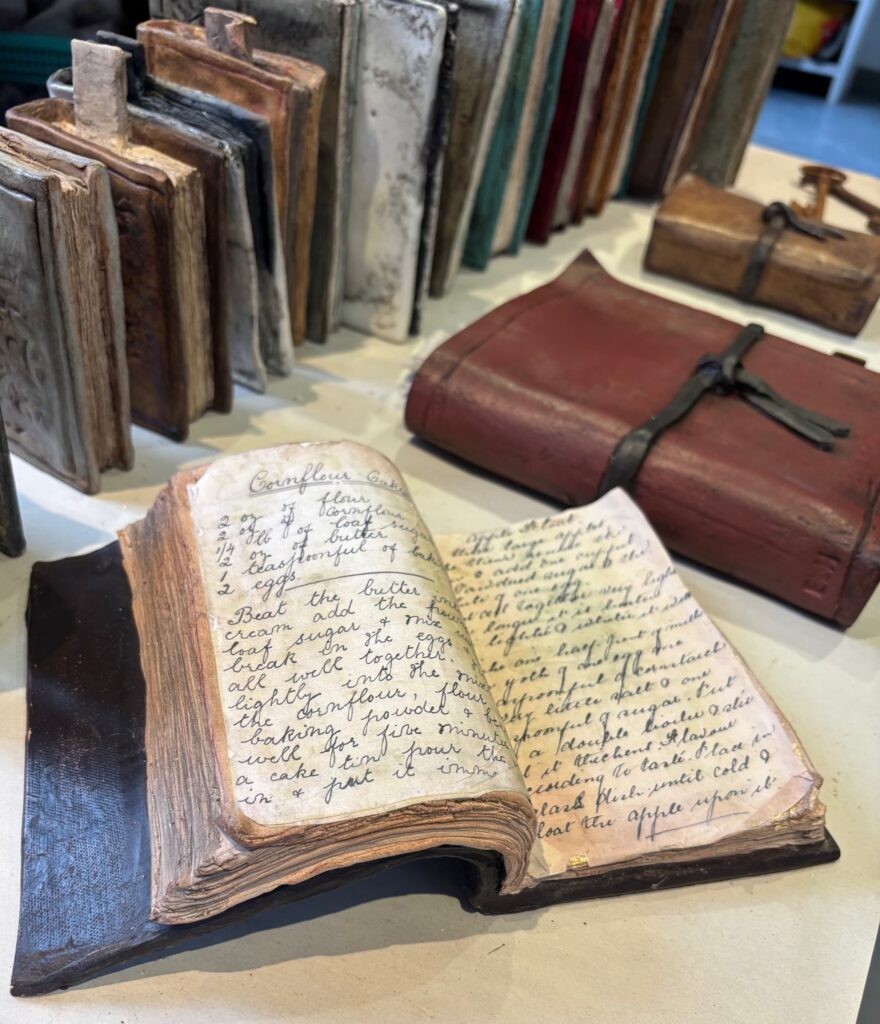 Cornflour Cake
2 oz of flour
2 oz of Cornflour
1/4 lb of loaf sugar
2 oz of butter
1 teaspoonful of bak
2 eggs
Beat the butter
cream add the
loaf sugar & mix
break in the eggs
all well together.
lightly into the
the cornflour, flour
baking powder &
well for five minute
a cake tin pour the
in & put it imme
Apple Float.
large
add one cupful
sugar & the
of one egg.
together very light
longer it is beaten
lighter &
one half pint of milk
yolk of one egg one
spoonful of cornstarch
little salt & one
spoonful of sugar. Put
a double boiler & stir
til it thickens flavour
according to taste. Place in
glass dish until cold &
float the apple upon it.